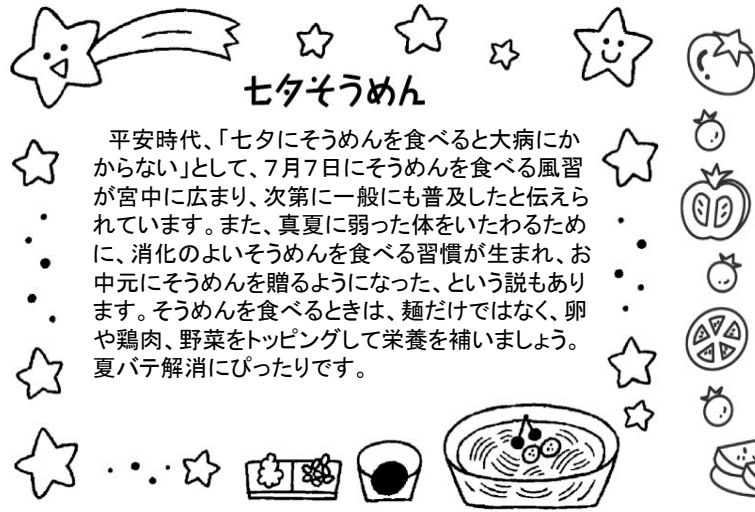 七夕そうめん
　平安時代、「七夕にそうめんを食べると大病にか
からない」として、７月７日にそうめんを食べる風習
が宮中に広まり、次第に一般にも普及したと伝えら
れています。また、真夏に弱った体をいたわるため
に、消化のよいそうめんを食べる習慣が生まれ、お
中元にそうめんを贈るようになった、という説もあり
ます。そうめんを食べるときは、麺だけではなく、卵
や鶏肉、野菜をトッピングして栄養を補いましょう。
夏バテ解消にぴったりです。